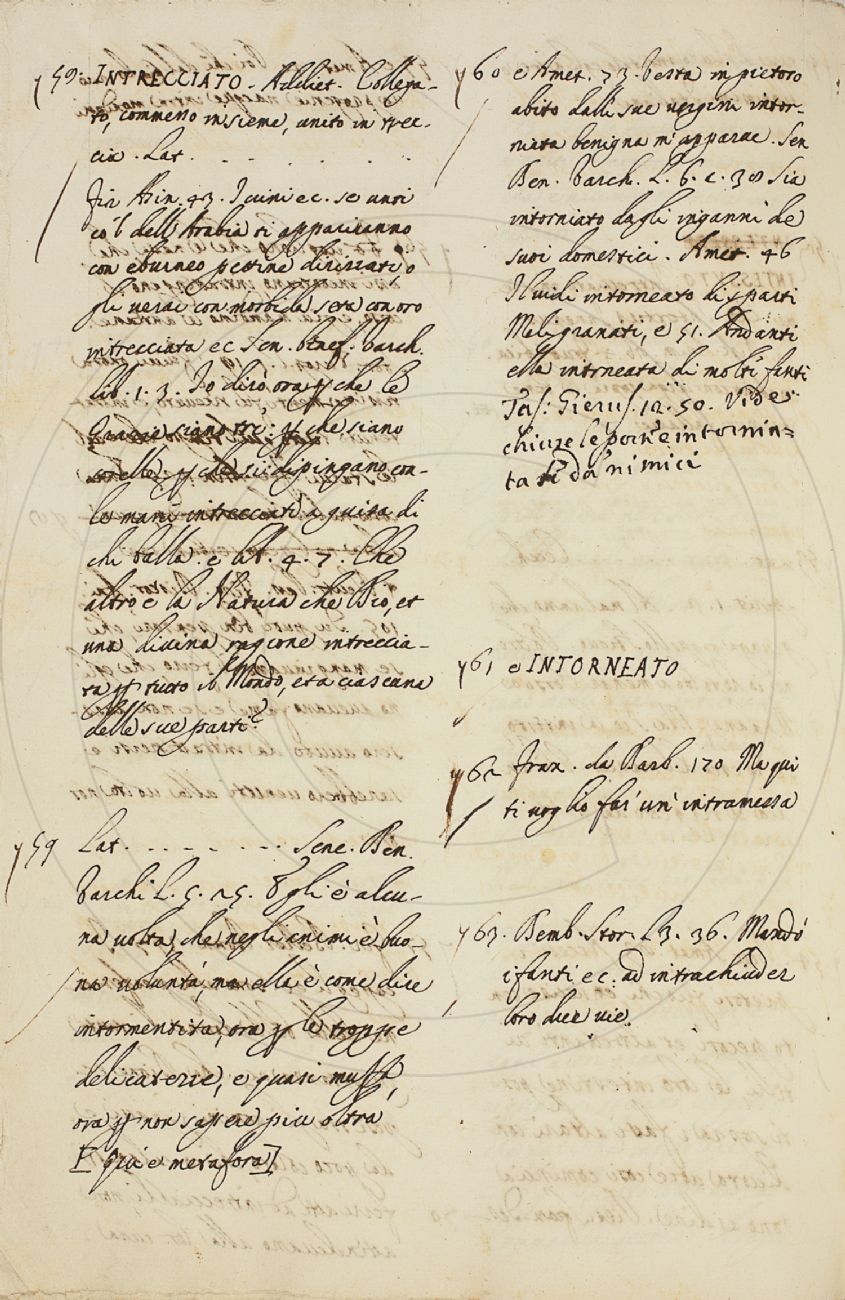 y59. INTRECCIATO. Addiet. Collega-
to, commesso insieme, unito in trec-
cia. Lat. . - - . . .
Fir. Asin. 43. I crini ec. se unti
cō l' dell'Arabia ti appariranno
con eburneo pettine dirizzati o
gli vedrai con morbida seta con oro
intrecciata ec Sen. benef. Varch.
lib. 1. 3. Io dirò ora p che le
Grazie siano tre: p che siano
sorelle: p che si dipingano con-
le mani intrecciate a guisa di
chi balla. e lib. 4. 7. Che
altro è la Natura che Dio, et
una divina ragione intreccia-
ta p tutto il Mondo, et a ciascuna
delle sue parti?
y59 Lat. - - - - - - Sene. Ben.
Varchi L. 5. 25. Egli è alcu-
na volta, che negli animi è buo-
na voluntà, ma ella è come dice
intormentita, ora p le troppe
delicatezze, e quasi muffa,
ora p non sapere più oltra
[qui è metafora]
y60 e Amet. 73. Vesta in pietoso
abito dalli sue vergini intor-
niata benigna m'apparve. Sen
Ben. Varch. L. 6. c. 30 Sia
intorniato dagli inganni de
suoi domestici. Amet. 46
Il vidi intorneato di sparti
Meligranati, e 51. Andanti
ella intorneata di molti fanti
Tas: Gierus. 12. 50. Vide
chiuse le porte e intornia=
ta sé da nimici
y61 o INTORNEATO
y62 Fran. da Barb. 170 Ma qui
ti voglio far un' intramessa
y63. Bemb. Stor. L 3. 36. Mandò
i fanti ec. ad intrachiuder
loro due vie.